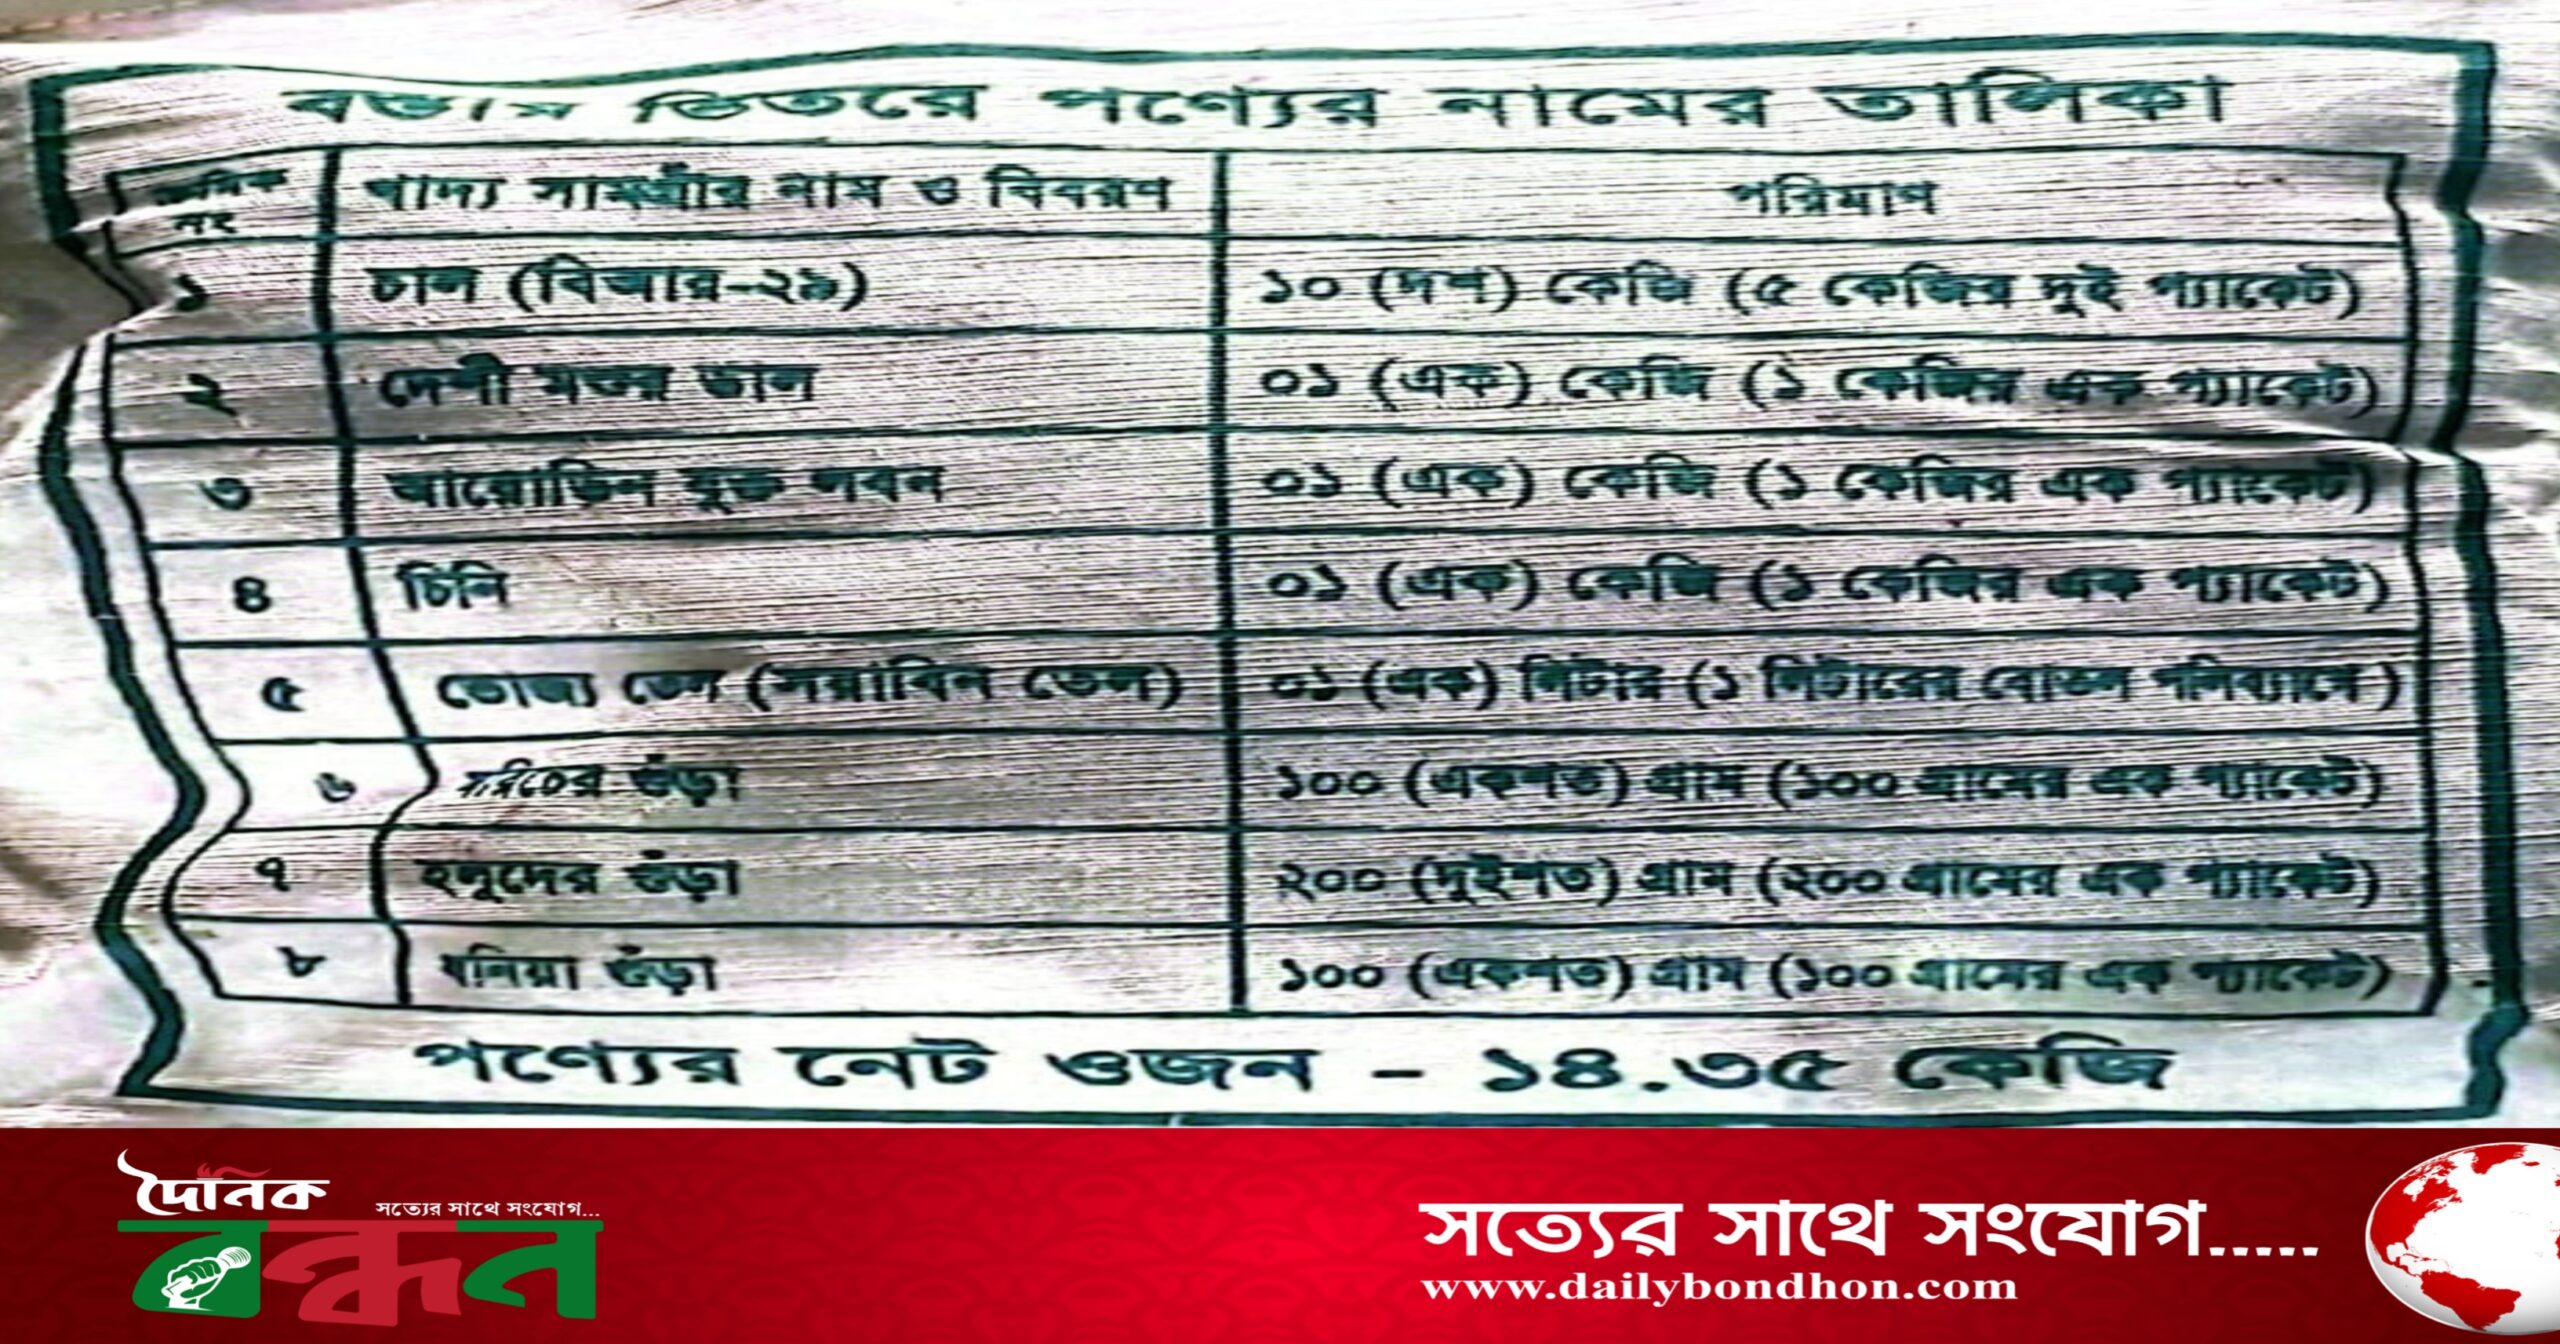 বস্তায় ভিতরে পণ্যের নামের তালিকা
ক্রমিক নং খাদ্য সামগ্রীর নাম ও বিবরণ পরিমাণ
১ চাল (বিআর-২৯) ১০ (দশ) কেজি (৫ কেজির দুই প্যাকেট)
২ দেশী মশুর ডাল ০১ (এক) কেজি (১ কেজির এক প্যাকেট)
৩ আয়োডিন যুক্ত লবন ০১ (এক) কেজি (১ কেজির এক প্যাকেট)
৪ চিনি ০১ (এক) কেজি (১ কেজির এক প্যাকেট)
৫ ভোজ্য তেল (সয়াবিন তেল) ০১ (এক) লিটার (১ লিটারের বোতল পলিব্যাগে)
৬ মরিচের গুঁড়া ১০০ (একশত) গ্রাম (১০০ গ্রামের এক প্যাকেট)
৭ হলুদের গুঁড়া ২০০ (দুইশত) গ্রাম (২০০ গ্রামের এক প্যাকেট)
৮ ধনিয়া গুঁড়া ১০০ (একশত) গ্রাম (১০০ গ্রামের এক প্যাকেট)
পণ্যের নেট ওজন - ১৪.৩৫ কেজি
দৈনিক
সত্যের সাথে সংযোগ...
বন্ধন
সত্যের সাথে সংযোগ.....
www.dailybondhon.com